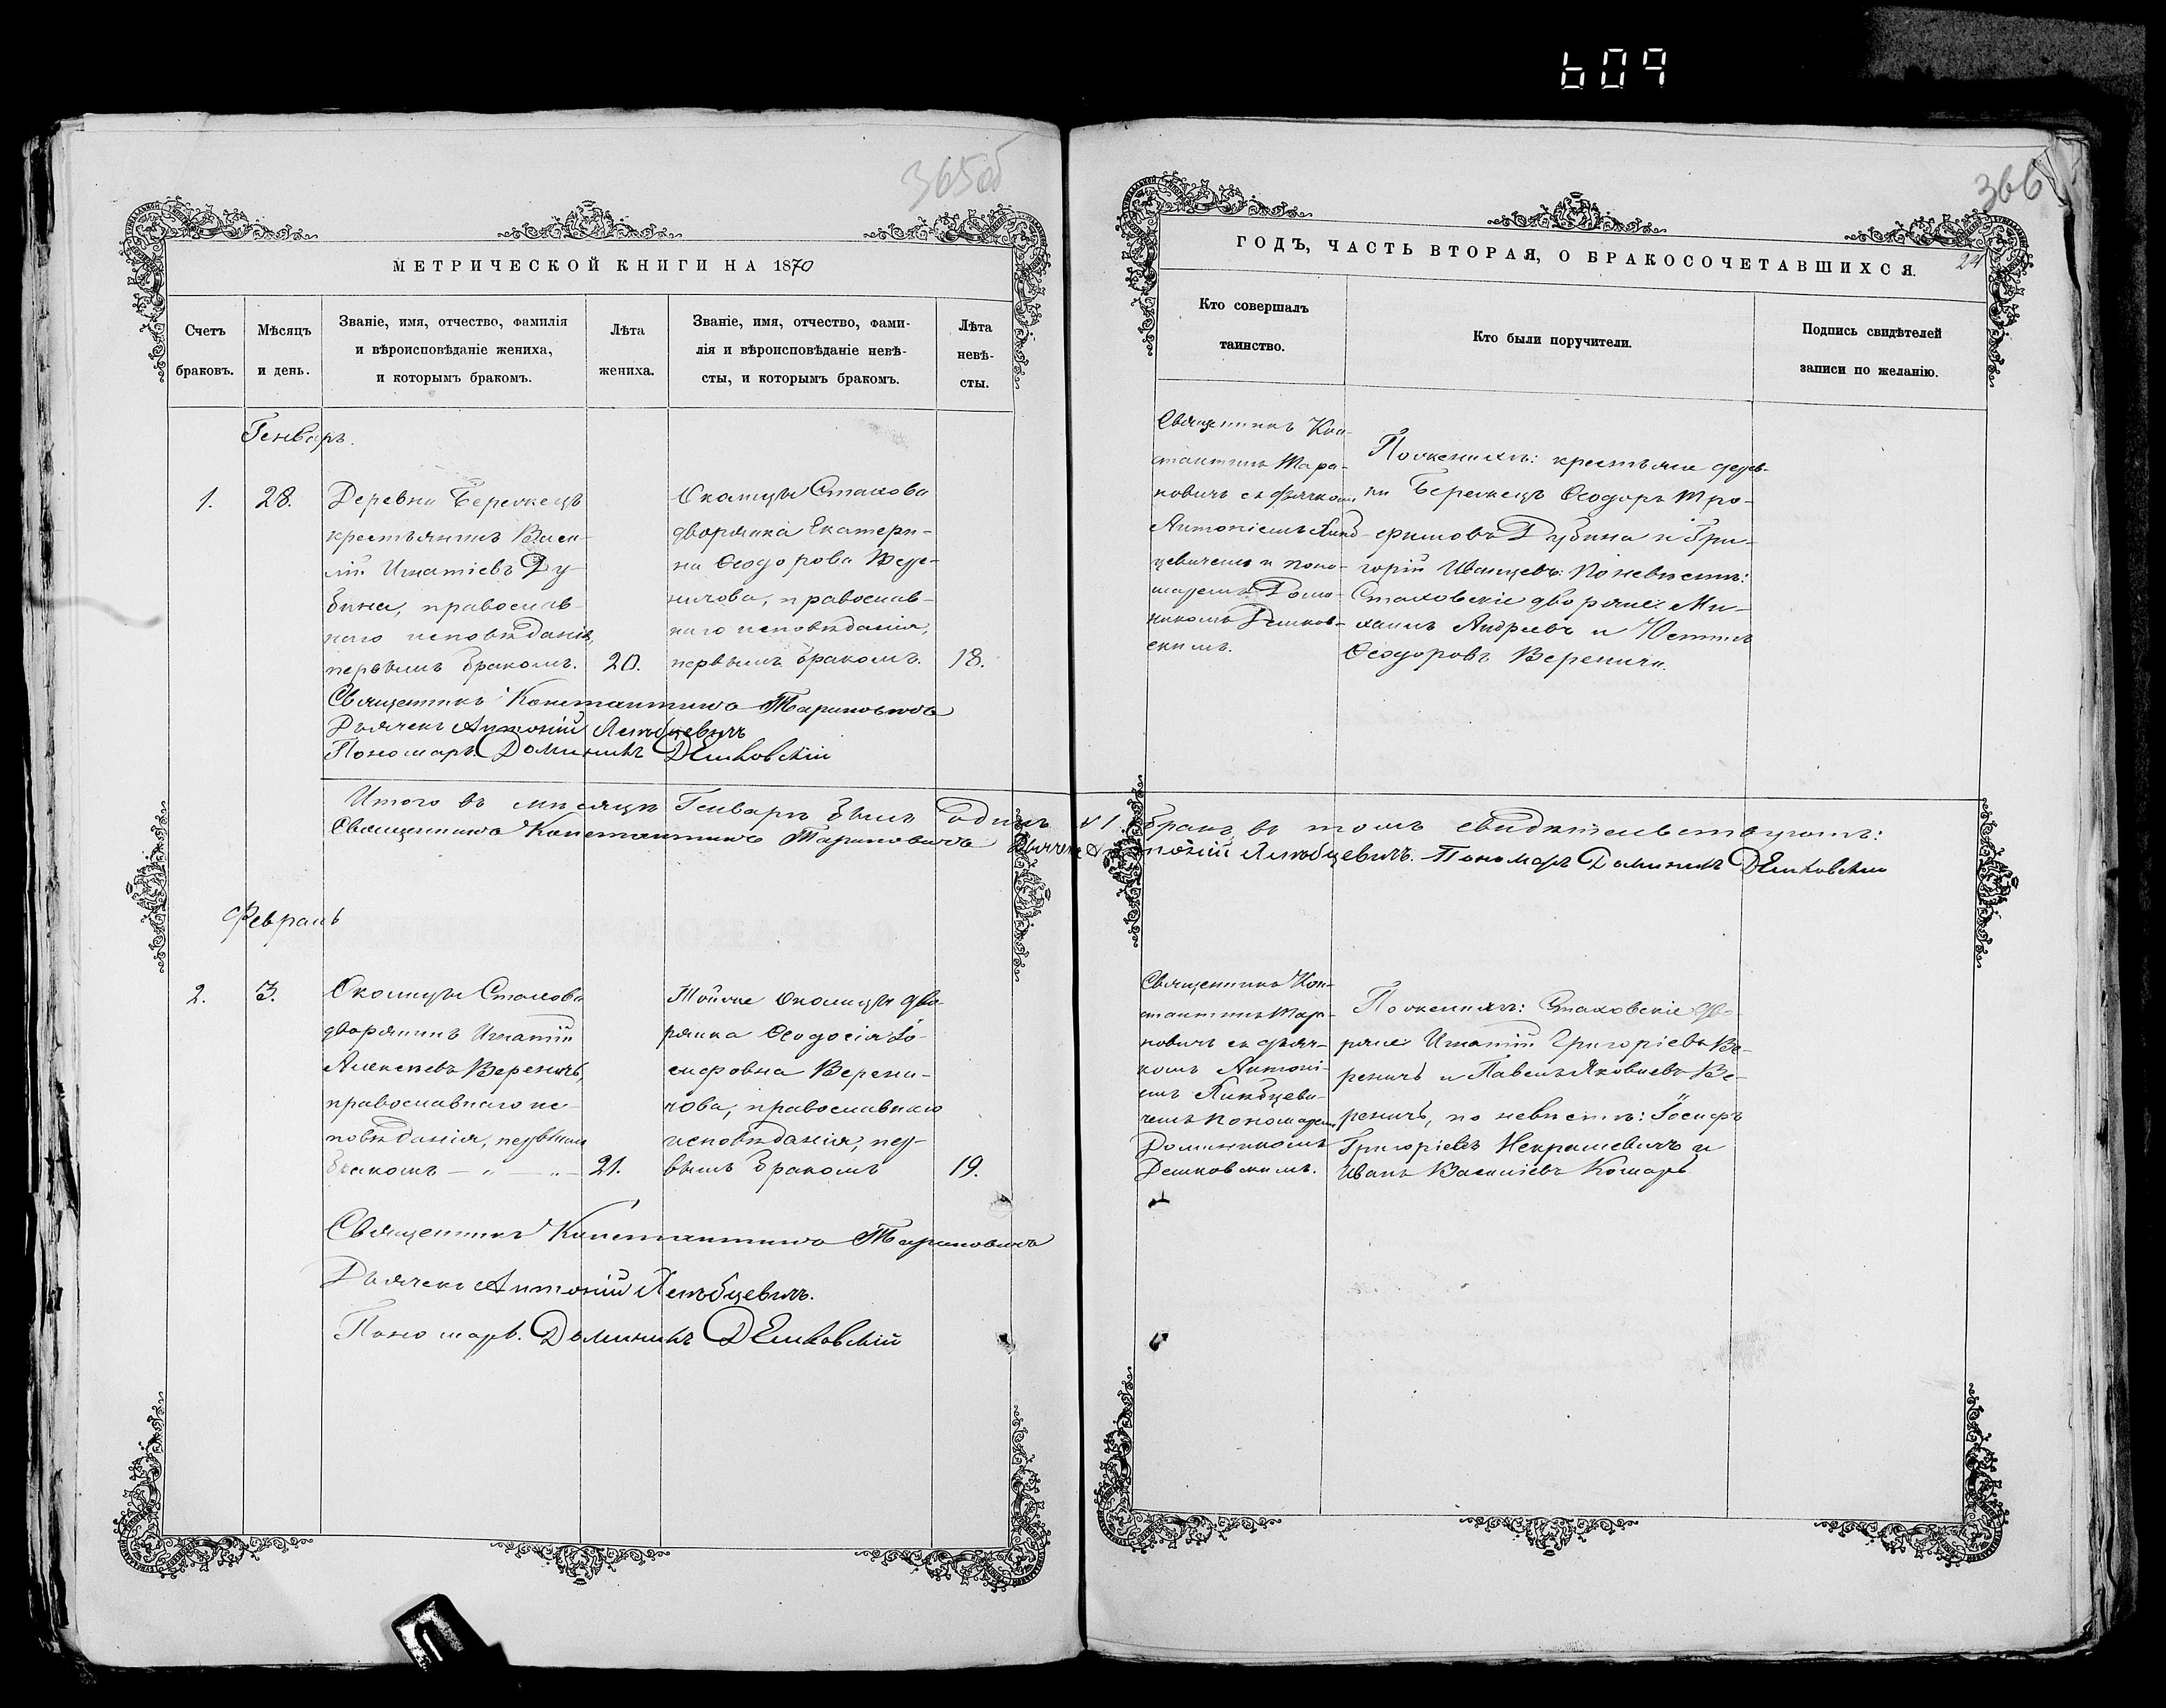 609
365об
366
24
МЕТРИЧЕСКОЙ КНИГИ НА 1870
ГОДЪ, ЧАСТЬ ВТОРАЯ, О БРАКОСОЧЕТАВШИХСЯ.
Счетъ
браковъ.
Мѣсяцъ
и день.
Званіе, имя, отчество, фамилія
и вѣроисповѣданіе жениха,
и которымъ бракомъ.
Лѣта
жениха.
Званіе, имя, отчество, фами-
лія и вѣроисповѣданіе невѣ-
сты, и которымъ бракомъ.
Лѣта
невѣ-
сты.
Кто совершалъ
таинство.
Кто были поручители.
Подпись свидѣтелей
записи по желанію.
Генварь.
1.
28.
Деревни Бережецъ
крестьянинъ Васи-
лій Игнатіевъ Ду-
бина, православ-
наго исповѣданія,
первымъ бракомъ.
20.
Околицы Стахова
дворянка Екатери-
на Ѳеодорова Вере-
ничова, православ-
наго исповѣданія,
первымъ бракомъ.
18.
Священникъ Кон-
стантинъ Тара-
новичъ съ дьячкомъ
Антоніемъ
цевичемъ и поно-
маремъ Доми-
никомъ Демков-
скимъ.
По женихѣ: крестьяне дерев-
ни Бережецъ Ѳеодоръ Тро-
фимовъ Дубина и Гри-
горій Иванцевъ: По невѣстѣ:
Стаховскіе дворяне: Ми-
хаилъ Андреевъ и Юстинъ
Ѳеодоровъ Вереничи.
Священникъ Константинъ Тарановичъ
Дьячекъ Антоній
Пономарь Доминикъ Демковскій
Итого въ мѣсяцѣ Генварѣ былъ одинъ 1. бракъ, въ томъ свидѣтельствуютъ:
Священникъ Константинъ Тарановичъ Дьячекъ Антоній Пономарь Доминикъ Демковскій
Февраль
2.
3.
Околицы Стахова
дворянинъ Игнатій
Алексѣевъ Вереничъ,
православнаго ис-
повѣданія, первымъ
бракомъ
21.
Тойже околицы дво-
рянка Ѳеодосія Іо-
сифовна Верени-
чова, православнаго
исповѣданія, пер-
вымъ бракомъ
19.
Священникъ Кон-
стантинъ Тара-
новичъ съ дьяч-
комъ Антоні-
емъ
чемъ пономаремъ
Доминикомъ
Демковскимъ.
По женихѣ: Стаховскіе дво-
ряне: Игнатій Григоріевъ Ве-
реничъ и Павелъ Яковлевъ Ве-
реничъ, по невѣстѣ: Іосифъ
Григоріевъ Некрашевичъ и
Иванъ Василіевъ Комаръ.
Священникъ Константинъ Тарановичъ
Дьячекъ Антоній
Пономарь. Доминикъ Демковскій